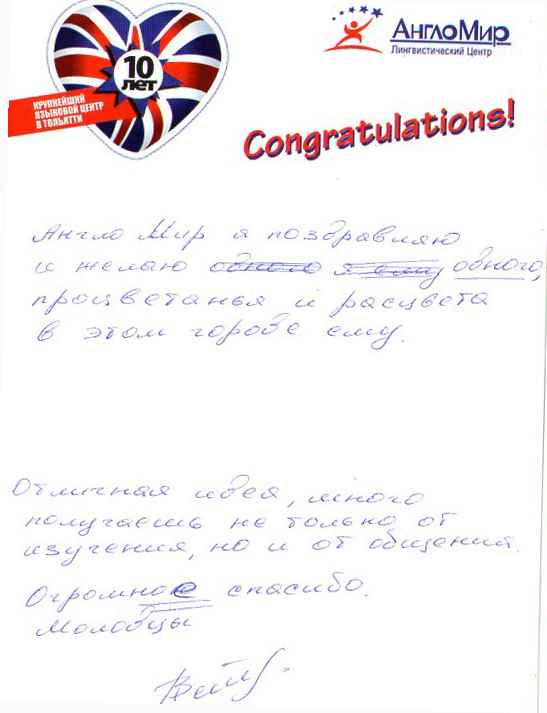 10
лет
КРУПНЕЙШИЙ
ЯЗЫКОВОЙ ЦЕНТР
В ТОЛЬЯТТИ
АнглоМир
Лингвистический Центр
Congratulations!
Англо Мир я поздравляю
и желаю одного я ему одного,
процветанья и расцвета
в этом городе ему.
Отличная идея, много
получаешь не только от
изучения, но и от общения.
Огромное спасибо.
Молодцы